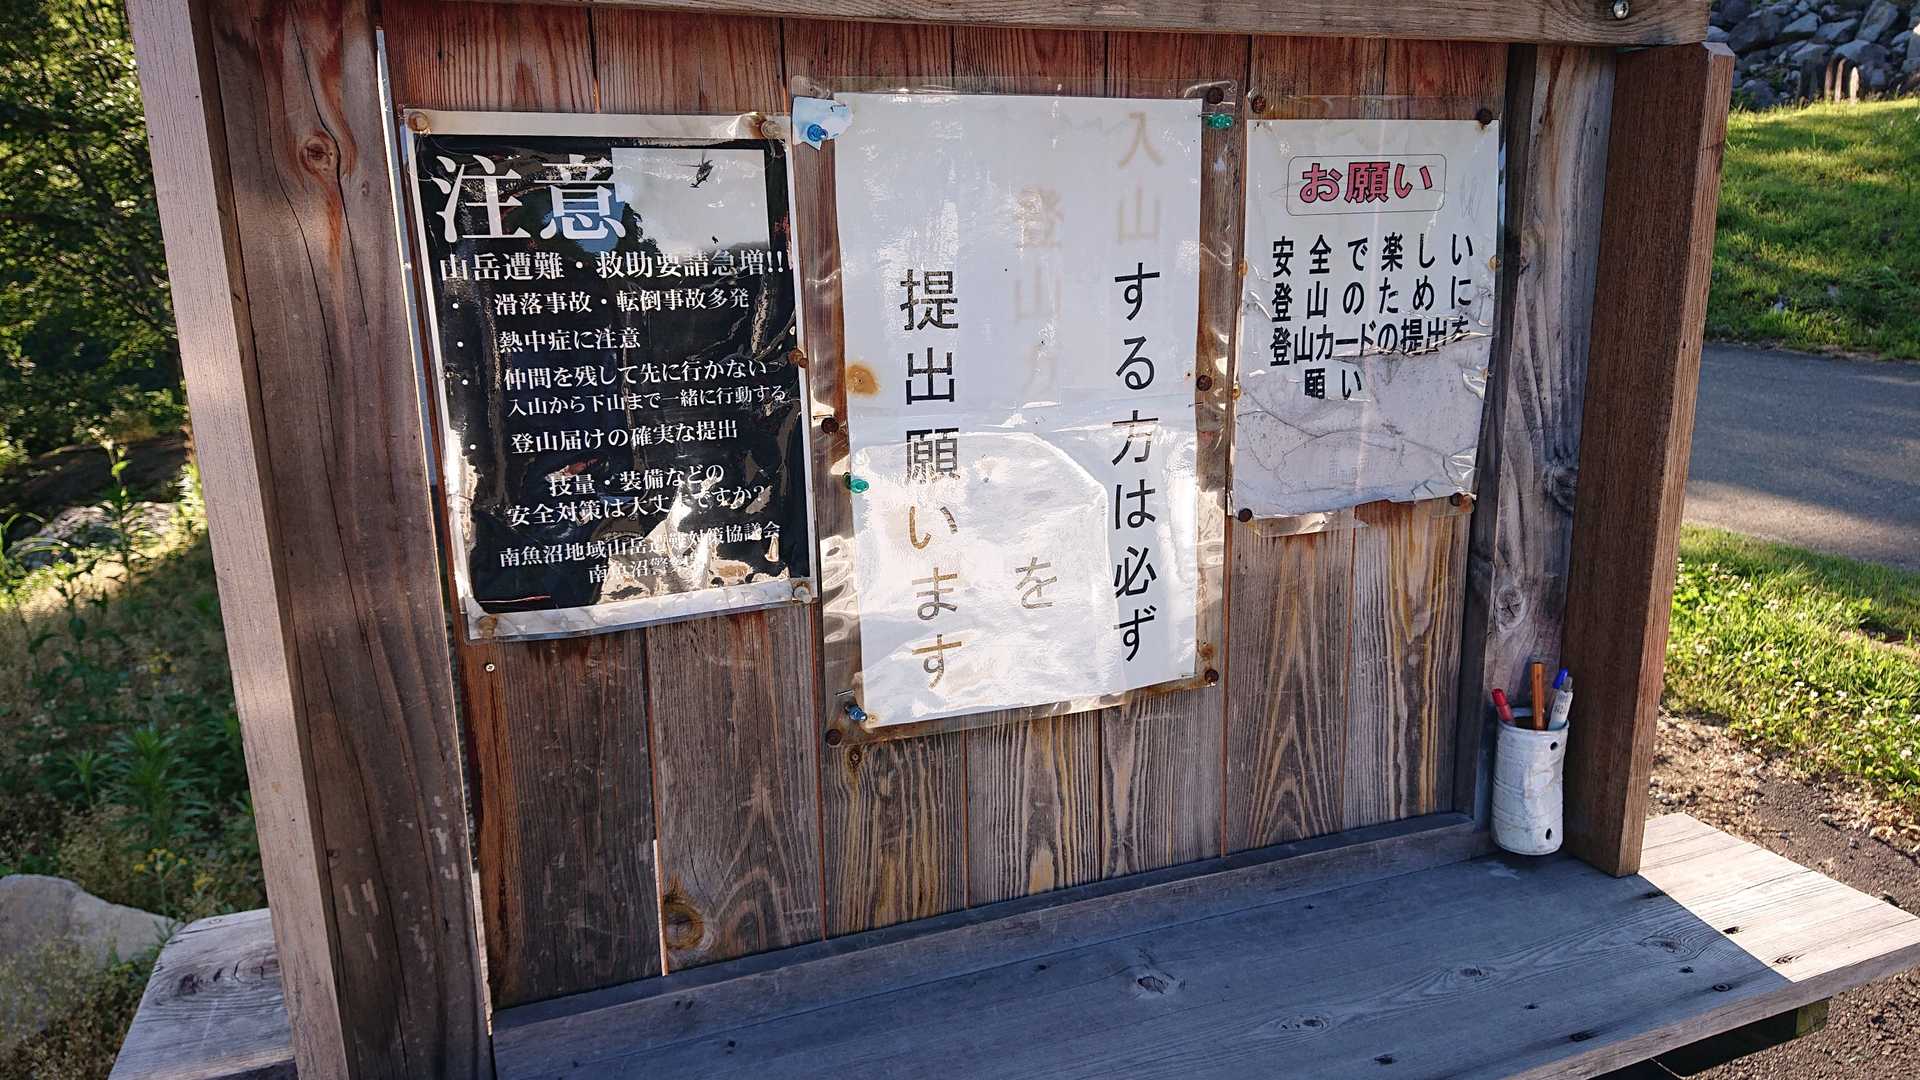 注意
山岳遭難・救助要請急増!!
・ 滑落事故・転倒事故多発
・ 熱中症に注意
・ 仲間を残して先に行かない
入山から下山まで一緒に行動する
・ 登山届けの確実な提出
技量・装備などの
安全対策は大丈夫ですか?
南魚沼地域山岳遭難対策協議会
南魚沼警
入山する方は必ず
登山 を
提出願います
お願い
安全で楽しい
登山のために
登山カードの提出を
願い